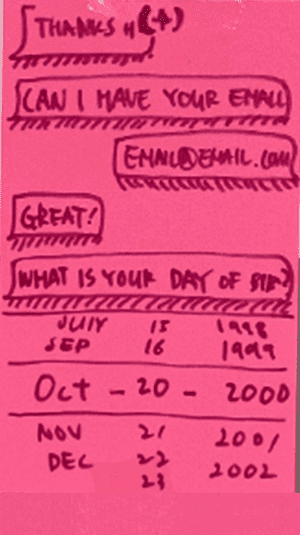 THANKS H(+)
CAN I HAVE YOUR EMAIL
EMAIL@EMAIL.COM
GREAT!
WHAT IS YOUR DAY OF BIR?
JULY 15 1998
SEP 16 1999
Oct - 20 - 2000
NOV 21 2001
DEC 22 2002
23